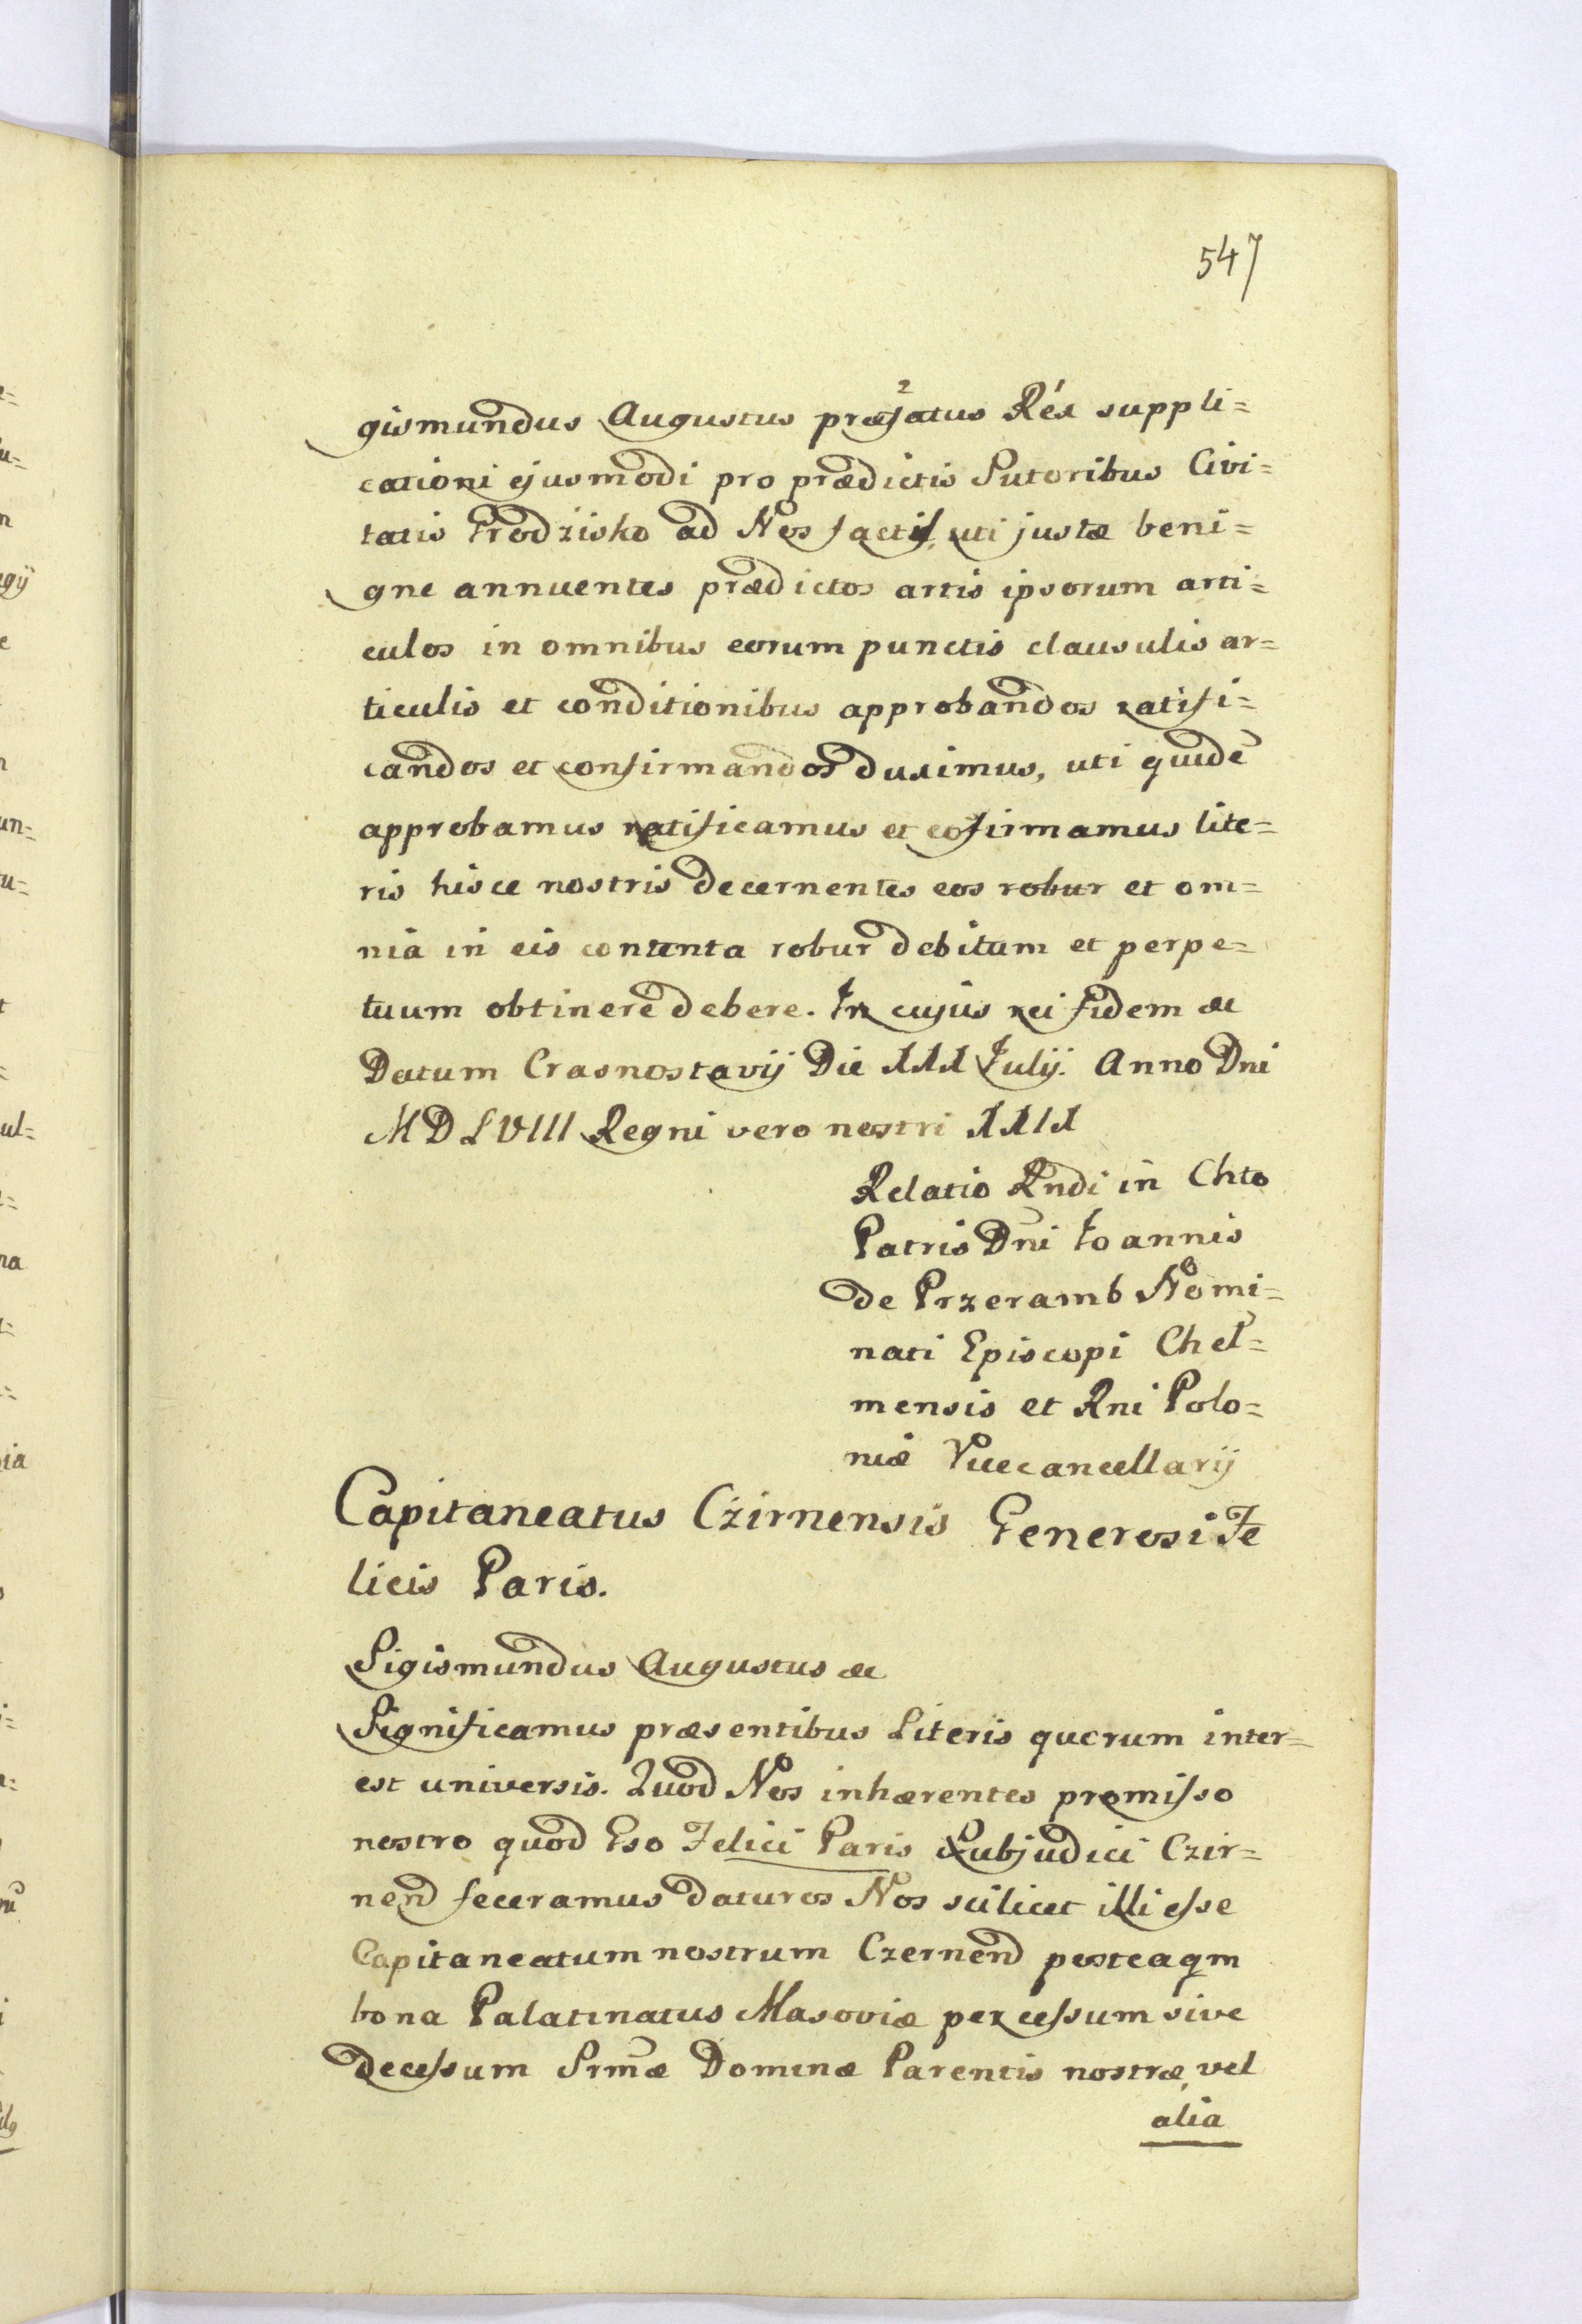 547
gismundus Augustus præfatus Réx suppli=
cationi ejusmodi pro prædictis Sutoribus Civi=
tatis Grodzisko ad Nos factis, uti justæ beni=
gne annuentes prædictos artis ipsorum arti=
culos in omnibus eorum punctis clausulis ar=
ticulis et conditionibus approbandos ratifi=
candos et confirmandos duximus, uti quidē
approbamus ratificamus et cōfirmamus lite=
ris hisce nostris decernentes eos robur et om=
nia in eis contenta robur debitum et perpe=
tuum obtinere debere. In cujus rei fidem &c
Datum Crasnostavij Die XXX Julij. Anno Dni
MDLVIII Regni vero nostri XXIX
Relatio Rndi in Chto
Patris Dni Joannis
de Przeramb Nomi=
nati Episcopi Chel=
mensis et Rni Polo=
niæ Vicecancellarij
Capitaneatus Czirnensis Generosi Fe
licis Paris.
Sigismundus Augustus &c
Significamus præsentibus Literis quorum inter=
est universis. Quod Nos inhærentes promisso
nostro quod Gso Felici Paris Subjudici Czir=
nend feceramus daturos Nos scilicet illi esse
Capitaneatum nostrum Czernend posteaqm
bona Palatinatus Masoviæ per cessum sive
decessum Srmæ Dominæ Parentis nostræ, vel
alia